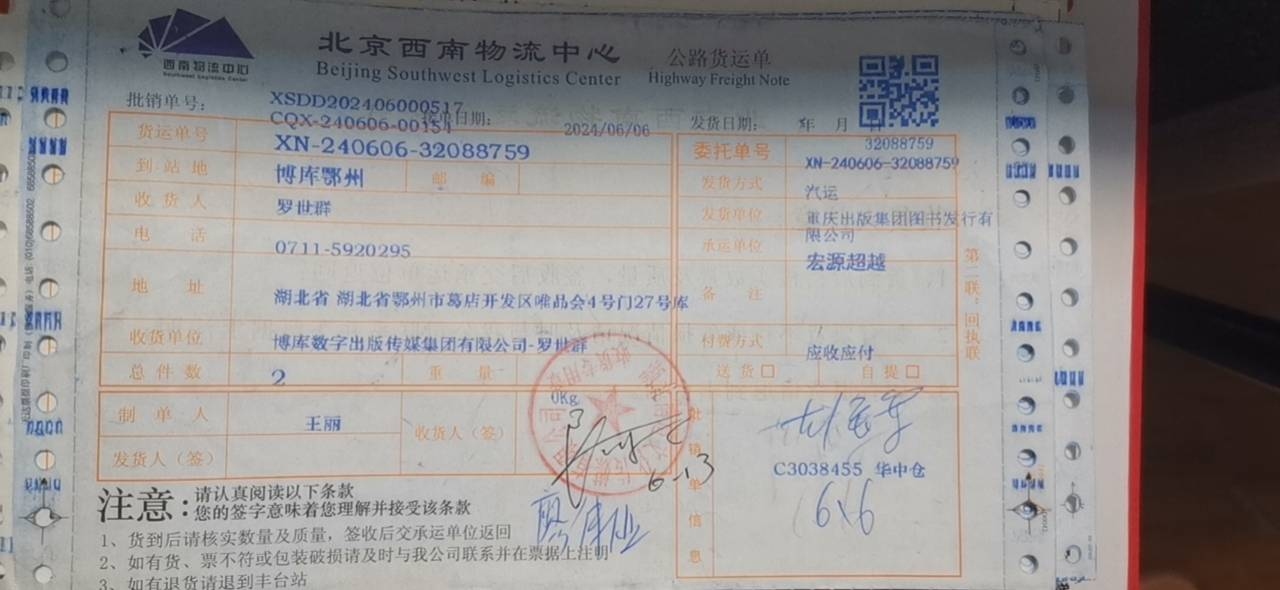 西南物流中心
Southwest Logistics Center
北京西南物流中心
Beijing Southwest Logistics Center
公路货运单
Highway Freight Note
批销单号：
XSDD202406000517
CQX-240606-00154
接单日期：
2024/06/06
发货日期：
年 月 日
货运单号
XN-240606-32088759
委托单号
32088759
XN-240606-32088759
到站地
博库鄂州
邮 编
发货方式
汽运
收货人
罗世群
发货单位
重庆出版集团图书发行有
限公司
电 话
0711-5920295
承运单位
宏源超越
地 址
湖北省 湖北省鄂州市葛店开发区唯品会4号门27号库
备 注
收货单位
博库数字出版传媒集团有限公司-罗世群
付费方式
应收应付
总件数
2
重 量
0Kg
送货□
自提□
制单人
王丽
收货人（签）
6-13
发货人（签）
批销单信息
C3038455 华中仓
6×6
第二联：回执联
注意：
请认真阅读以下条款
您的签字意味着您理解并接受该条款
1、货到后请核实数量及质量，签收后交承运单位返回
2、如有货、票不符或包装破损请及时与我公司联系并在票据上注明
3、如有退货请退到丰台站